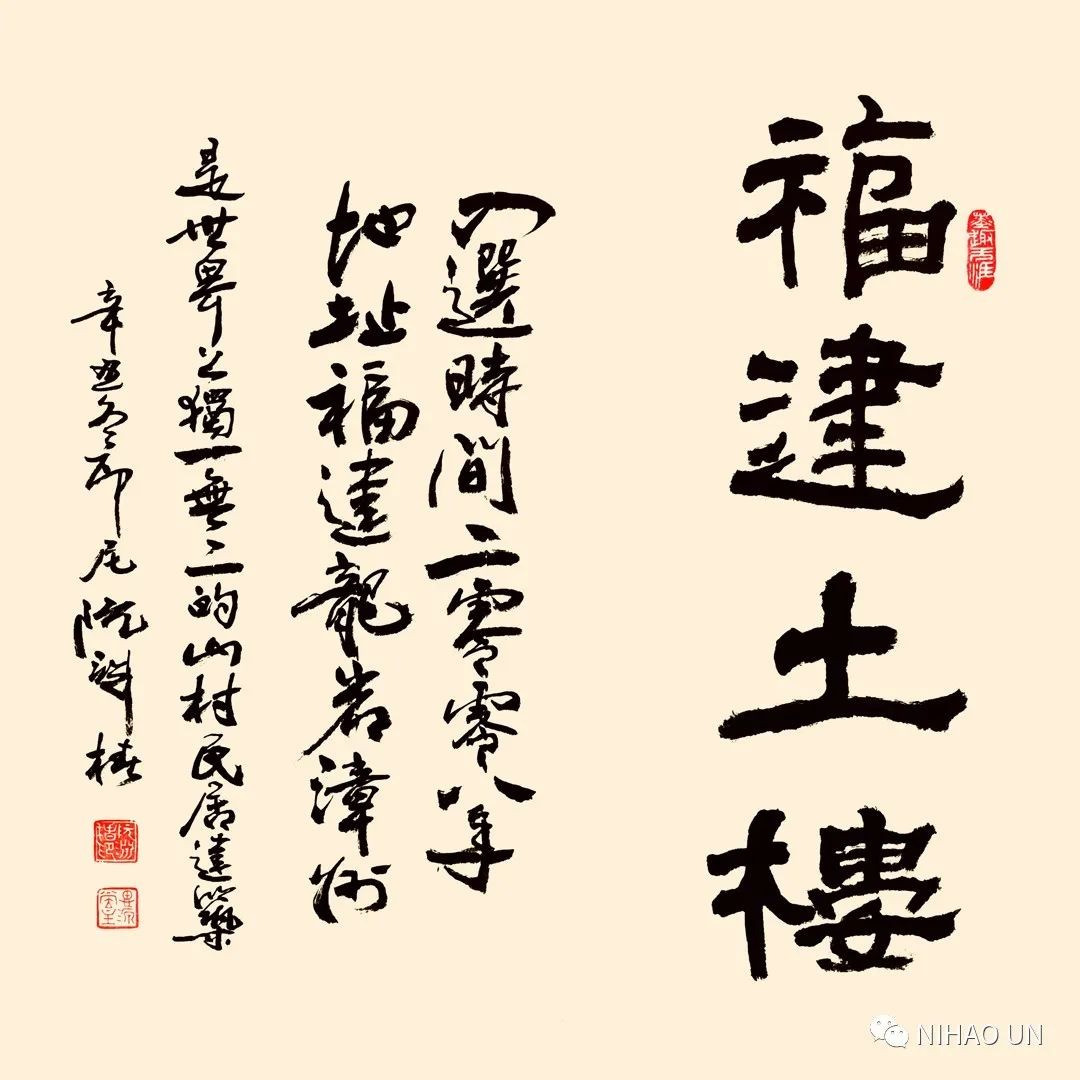 福建土樓
入選時間二零零八年
地址福建龍岩漳州
是世界上獨一無二的山村民居建築
辛丑冬即尾阮誅椿
墨趣天涯
NIHAO UN